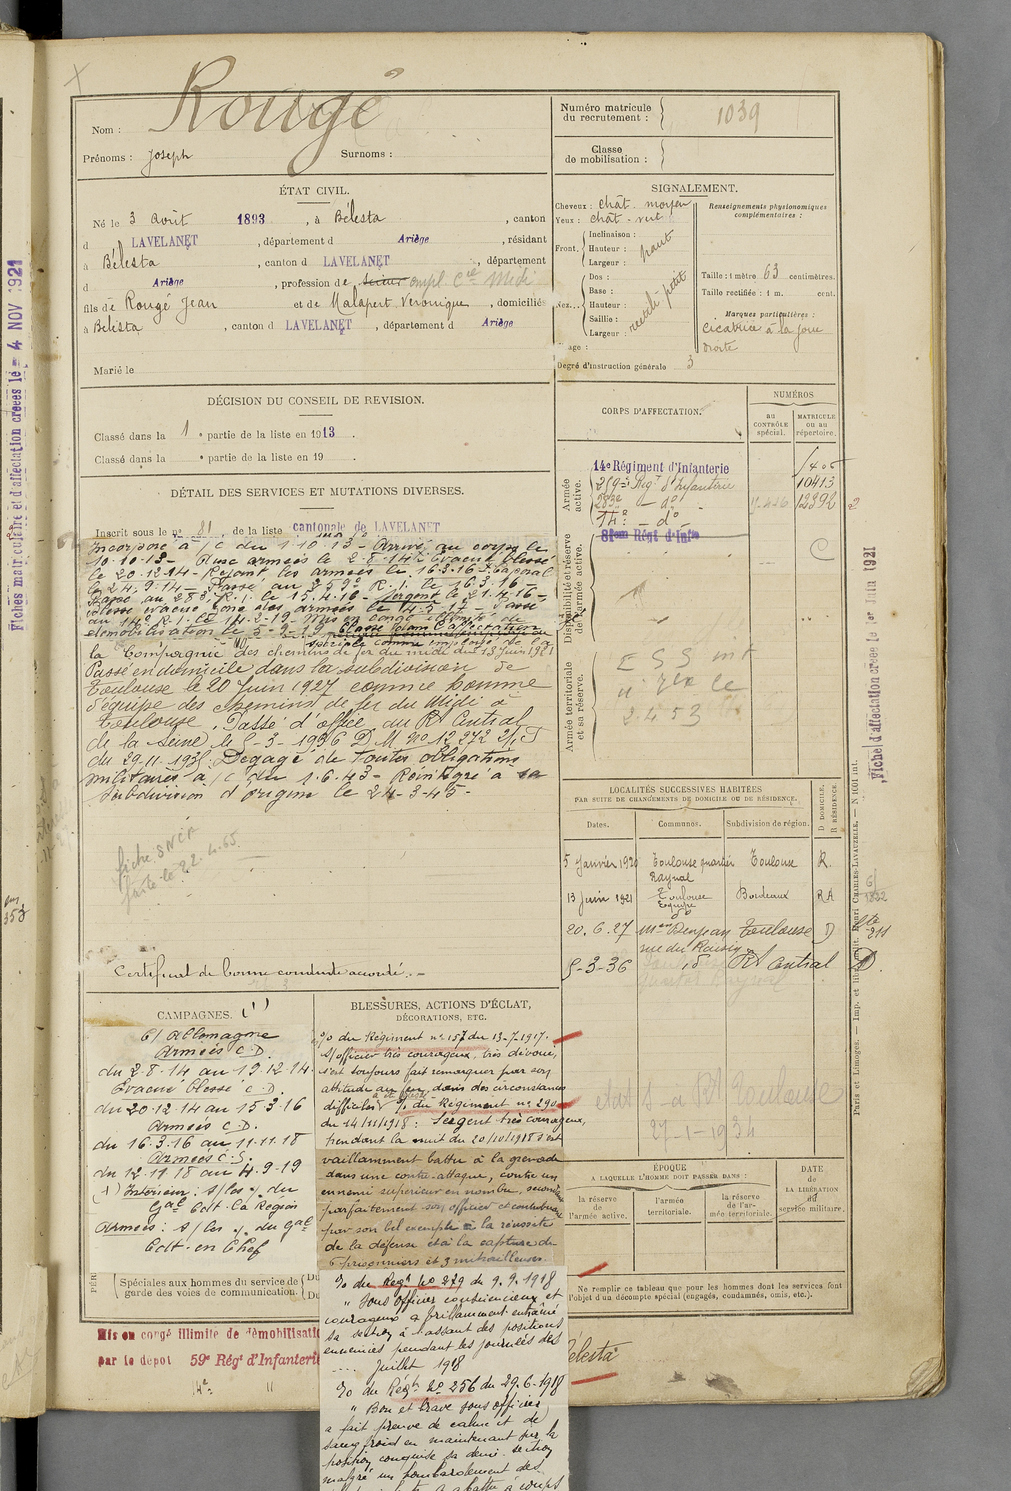 Rougé
Nom :
Prénoms : Joseph Surnoms :
Numéro matricule
du recrutement : 1039
Classe
de mobilisation :
ÉTAT CIVIL.
Né le 3 août 1893, à Bélesta, canton
d LAVELANET, département d Ariège, résidant
à Bélesta, canton d LAVELANET, département
d Ariège, profession de empl Cie Midi
fils de Rougé Jean et de Malapert Véronique, domiciliés
à Bélesta, canton d LAVELANET, département d Ariège
Marié le
SIGNALEMENT.
Cheveux : chât. moyen
Yeux : chât - vert
Front. Inclinaison :
Hauteur : haut
Largeur :
Nez... Dos : rectil. petit
Base :
Hauteur :
Saillie :
Largeur :
Visage :
Degré d'instruction générale 3
Renseignements physionomiques
complémentaires :
Taille : 1 mètre 63 centimètres.
Taille rectifiée : 1 m. cent.
Marques particulières :
cicatrice à la joue
droite
DÉCISION DU CONSEIL DE REVISION.
Classé dans la 1e partie de la liste en 1913.
Classé dans la e partie de la liste en 19 .
DÉTAIL DES SERVICES ET MUTATIONS DIVERSES.
Inscrit sous le no 81 de la liste cantonale de LAVELANET
Incorporé à /c du 1.10.13 - Arrivé au corps le
10-10-13 - Aux armées le 2-8-14 - Evacué blessé
le 20-12-14 - Rejoint les armées le 16.3.16 - Caporal
le 24.9.14 - Passé au 259e R.I. le 16.3.16 -
Passé au 283e R.I. le 15.4.16 - Sergent le 21.4.16 -
Blessé évacué zone des armées le 14-5-17 - Passé
au 14e R.I. le 14-2-19 Mis en congé illimité de
démobilisation le 5-9-19 Classé dans l'affectation
spéciale comme employé de la
la Compagnie des chemins de fer du midi du 13 Juin 1921
Passé en domicile dans la subdivision de
Toulouse le 20 Juin 1927 comme homme
d'équipe des Chemins de fer du Midi à
Toulouse. Passé d'office au Rt Central
de la Seine le 5-3-1936 D.M. No 12272 2/1.T
du 29.11.1935. Dégagé de toutes obligations
militaires à /c du 1.6.43 - Réintégré à sa
subdivision d'origine le 24-3-45 -
fiche SNCF
faite le 22.4.65.
Certificat de bonne conduite accordé. -
CORPS D'AFFECTATION.
NUMÉROS
AU
CONTRÔLE
spécial.
MATRICULE
ou au
répertoire.
Armée
active.
14e Régiment d'Infanterie
259e Regt d'Infanterie 10413
283e - do - 12392
14e - do -
81eme Régt d'Infie
Disponibilité et réserve
de l'armée active.
C
Armée territoriale
et sa réserve.
LOCALITÉS SUCCESSIVES HABITÉES
PAR SUITE DE CHANGEMENTS DE DOMICILE OU DE RÉSIDENCE.
Dates. Communes. Subdivision de région. D DOMICILE. R RÉSIDENCE.
5 Janvier 1920 Toulouse quartier Toulouse R.
Raynal
13 Juin 1921 Toulouse Bordeaux RA
20.6.27 Toulouse D
5-3-36 Rt Central D.
état S - a Rt Toulouse
27-1-1934
CAMPAGNES. (1)
C/ Allemagne
Armées C.D.
du 2-8-14 au 19.12.14.
Evacué blessé C.D.
du 20-12-14 au 15.3.16
Armées C.D.
du 16-3.16 au 11.11.18
Armées C.S.
du 12-11-18 au 4-9-19
(1) Intérieur : s/les y. du
Gal Cdt. la Région
Armées : s/les y. du Gal
Cdt. en Chef
BLESSURES, ACTIONS D'ÉCLAT,
DÉCORATIONS, ETC.
% du Régiment no 157 du 13-7-1917.
S/officier très courageux, très dévoué,
s'est toujours fait remarquer par son
attitude au feu dans des circonstances
difficiles % du Régiment no 290
du 14/11/1918 : Sergent très courageux,
pendant la nuit du 20/10/1918 s'est
vaillamment battu à la grenade
dans une contre-attaque, contre un
ennemi supérieur en nombre, secondant
parfaitement son officier et contribuant
par son bel exemple à la réussite
de la défense et à la capture de
6 prisonniers et 3 mitrailleuses.
% du Regt No 279 du 9.9.1918
" Sous Officier consciencieux et
courageux a brillamment entraîné
sa section à l'assaut des positions
ennemies pendant les journées des
.... Juillet 1918
% du Regt No 256 du 29.6-1918
" Bon et brave sous officier
a fait preuve de calme et de
sang froid en maintenant sur la
position conquise sa demi section
malgré un bombardement des
ÉPOQUE
A LAQUELLE L'HOMME DOIT PASSER DANS :
la réserve
de
l'armée active.
l'armée
territoriale.
la réserve
de l'ar-
mée territoriale.
DATE
de
LA LIBÉRATION
du
service militaire.
Ne remplir ce tableau que pour les hommes dont les services font
l'objet d'un décompte spécial (engagés, condamnés, omis, etc.).
Spéciales aux hommes du service de
garde des voies de communication.
Du
Du
Mis en congé illimité de démobilisati
par le dépôt 59e Régt d'Infanterie
14e "
élesta
Fiches matriculaire et d'affectation créées le - 4 NOV 1921
Fiche d'affectation créée le 1er Juin 1921
Paris et Limoges. — Imp. et lib. milit. Henri CHARLES-LAVAUZELLE. — N 1001 int.
353